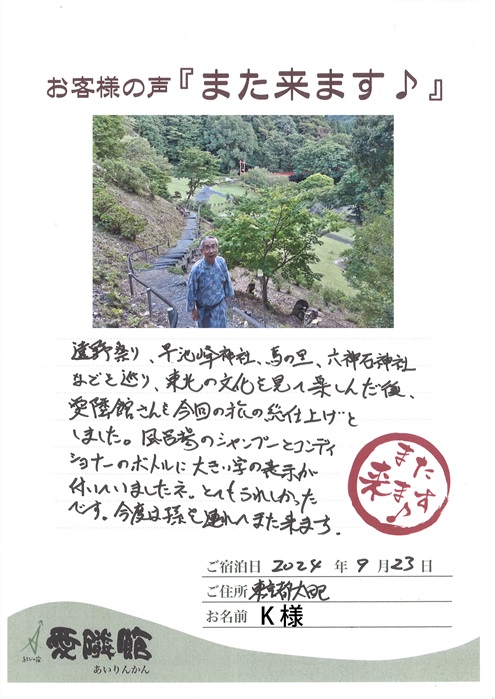 お客様の声『また来ます♪』
遠野祭り、早池峰神社、馬の里、六神石神社
などを巡り、東北の文化を見て楽しんだ後、
愛隣館さんを今回の旅の総仕上げと
しました。風呂場のシャンプーとコンディ
ショナーのボトルに大きい字の表示が
付いていましたネ。とてもうれしかった
です。今度は孫を連れてまた来ます。
また
来ます♪
ご宿泊日 2024 年 9 月 23 日
ご住所 東京都
お名前 K 様
愛隣館
あいりんかん